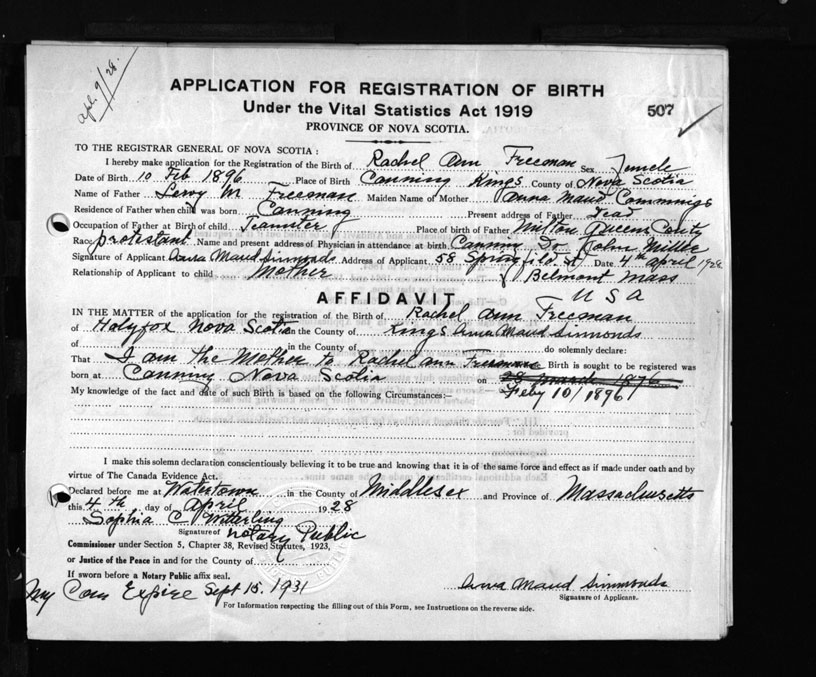 apl. 9/28.
APPLICATION FOR REGISTRATION OF BIRTH
Under the Vital Statistics Act 1919
507
PROVINCE OF NOVA SCOTIA.
TO THE REGISTRAR GENERAL OF NOVA SCOTIA :
I hereby make application for the Registration of the Birth of Rachel Ann Freeman Sex Female
Date of Birth 10 Feb 1896 Place of Birth Canning Kings County of Nova Scotia
Name of Father Levy M Freeman Maiden Name of Mother Anna Maud Cummigs
Residence of Father when child was born Canning Present address of Father Dead
Occupation of Father at Birth of child Teamster Place of birth of Father Milton Queens
Race protestant Name and present address of Physician in attendance at birth Canning Dr John Miller
Signature of Applicant Anna Maud Simmonds Address of Applicant 58 Springfild St Date 4th april 1928
Relationship of Applicant to child Mother Belmont Mass
USA
AFFIDAVIT
IN THE MATTER of the application for the registration of the Birth of Rachel Ann Freeman
of Halyfox Nova Scotia in the County of Kings Anna Maud Simmonds
of in the County of do solemnly declare:
That I am the Mother to Rachel ann Freeman Birth is sought to be registered was
born at Canning Nova Scotia on 28 March 1876
Feby 10/1896
My knowledge of the fact and date of such Birth is based on the following Circumstances:—
I make this solemn declaration conscientiously believing it to be true and knowing that it is of the same force and effect as if made under oath and by
virtue of The Canada Evidence Act.
Declared before me at Watertown in the County of Middlesex and Province of Massachusetts
this 4th day of April 1928
Sophia C
Signature of Notary Public
Commissioner under Section 5, Chapter 38, Revised Statutes, 1923,
or Justice of the Peace in and for the County of
If sworn before a Notary Public affix seal.
My Com Expire Sept 15. 1931
Anna Maud Simmonds
Signature of Applicant.
For Information respecting the filling out of this Form, see Instructions on the reverse side.